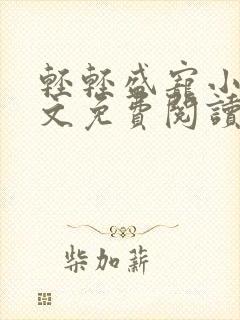 輕輕盛寵小
文免費閱讀
柴加薪